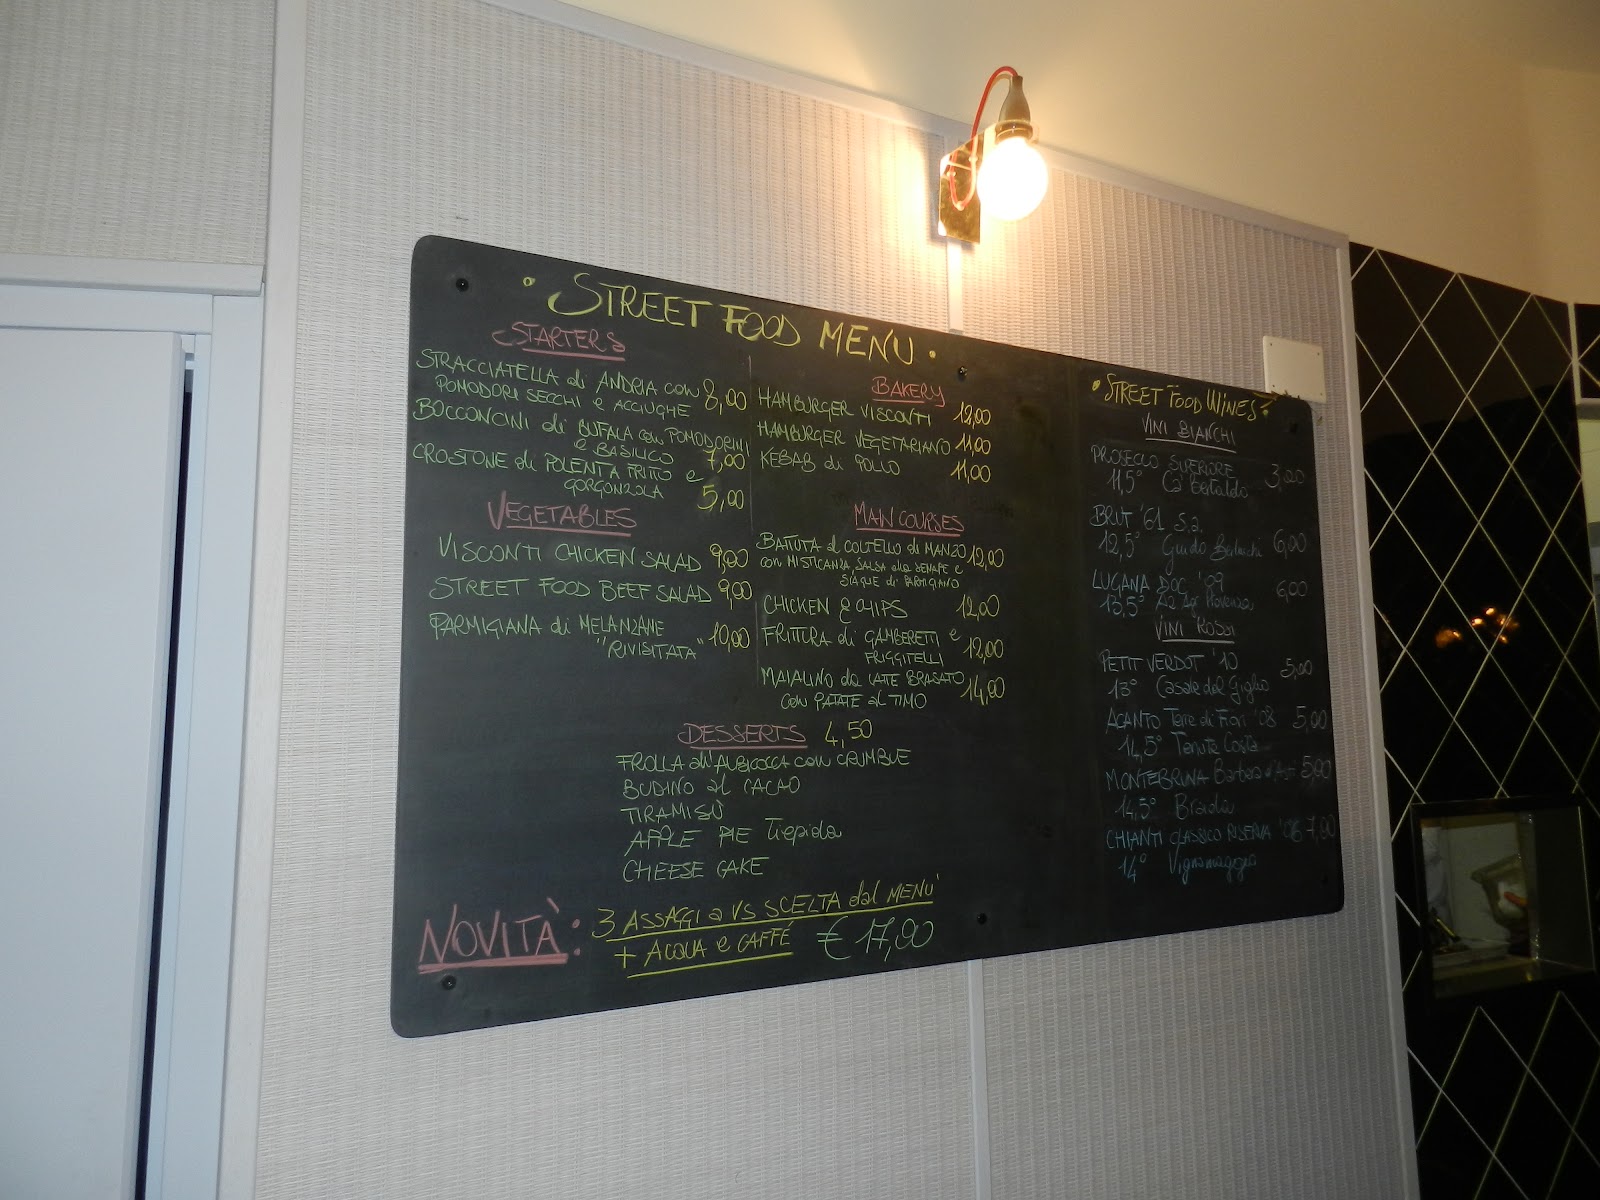 • STREET FOOD MENU •
STARTERS
STRACCIATELLA di ANDRIA con 8,00
POMODORI SECCHI e ACCIUGHE
BOCCONCINI di BUFALA con POMODORINI
e BASILICO 7,00
CROSTONE di POLENTA FRITTO e
GORGONZOLA 5,00
VEGETABLES
VISCONTI CHICKEN SALAD 9,00
STREET FOOD BEEF SALAD 9,00
PARMIGIANA di MELANZANE
"RIVISITATA" 10,00
BAKERY
HAMBURGER VISCONTI 12,00
HAMBURGER VEGETARIANO 11,00
KEBAB di POLLO 11,00
MAIN COURSES
BATTUTA al COLTELLO di MANZO 12,00
con MISTICANZA SALSA alla SENAPE e
SCAGLIE di PARMIGIANO
CHICKEN & CHIPS 12,00
FRITTURA di GAMBERETTI e
FRIGGITELLI 12,00
MAIALINO da LATTE BRASATO
con PATATE al TIMO 14,00
DESSERTS 4,50
FROLLA all'ALBICOCCA con CRUMBLE
BUDINO al CACAO
TIRAMISÙ
APPLE PIE Tiepida
CHEESE CAKE
NOVITÀ: 3 ASSAGGI a VS SCELTA dal MENU'
+ ACQUA e CAFFÉ € 17,00
• STREET FOOD WINES •
VINI BIANCHI
PROSECCO SUPERIORE 3,00
11,5° Ca' Bertaldo
BRUT '61 s.a.
12,5° Guido Berlucchi 6,00
LUGANA DOC '09 6,00
13,5° Az Agr Provenza
VINI ROSSI
PETIT VERDOT '10 5,00
13° Casale del Giglio
ACANTO Terre di Fiori '08 5,00
14,5° Tenute Costa
MONTEBRUNA Barbera d'Asti 5,00
14,5° Braida
CHIANTI CLASSICO RISERVA '06 7,00
14° Vignamaggio